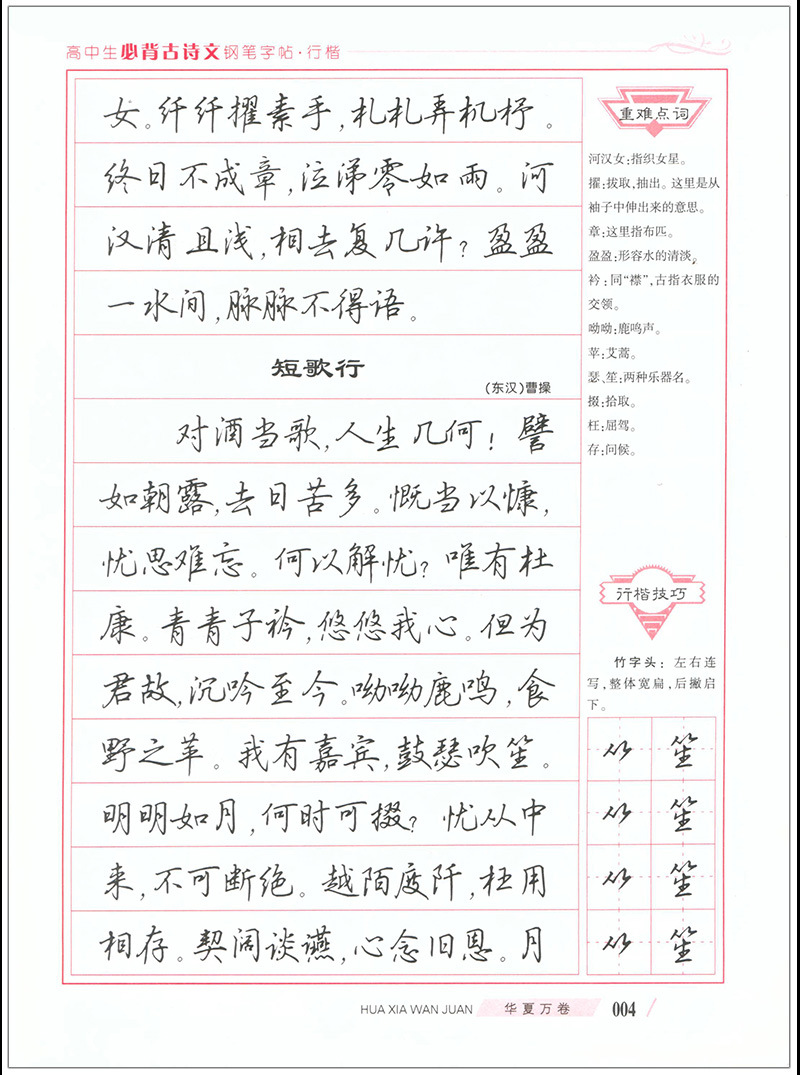 高中生必背古诗文钢笔字帖·行楷
女。纤纤擢素手，札札弄机杼。
终日不成章，泣涕零如雨。河
汉清且浅，相去复几许？盈盈
一水间，脉脉不得语。
短歌行
（东汉）曹操
对酒当歌，人生几何！譬
如朝露，去日苦多。慨当以慷，
忧思难忘。何以解忧？唯有杜
康。青青子衿，悠悠我心。但为
君故，沉吟至今。呦呦鹿鸣，食
野之苹。我有嘉宾，鼓瑟吹笙。
明明如月，何时可掇？忧从中
来，不可断绝。越陌度阡，枉用
相存。契阔谈䜩，心念旧恩。月
重难点词
河汉女：指织女星。
擢：拔取，抽出。这里是从
袖子中伸出来的意思。
章：这里指布匹。
盈盈：形容水的清淡。
衿：同“襟”，古指衣服的
交领。
呦呦：鹿鸣声。
苹：艾蒿。
瑟、笙：两种乐器名。
掇：拾取。
枉：屈驾。
存：问候。
行楷技巧
竹字头：左右连
写，整体宽扁，后撇启
下。
⺮ 笙
⺮ 笙
⺮ 笙
⺮ 笙
HUA XIA WAN JUAN 华夏万卷 004